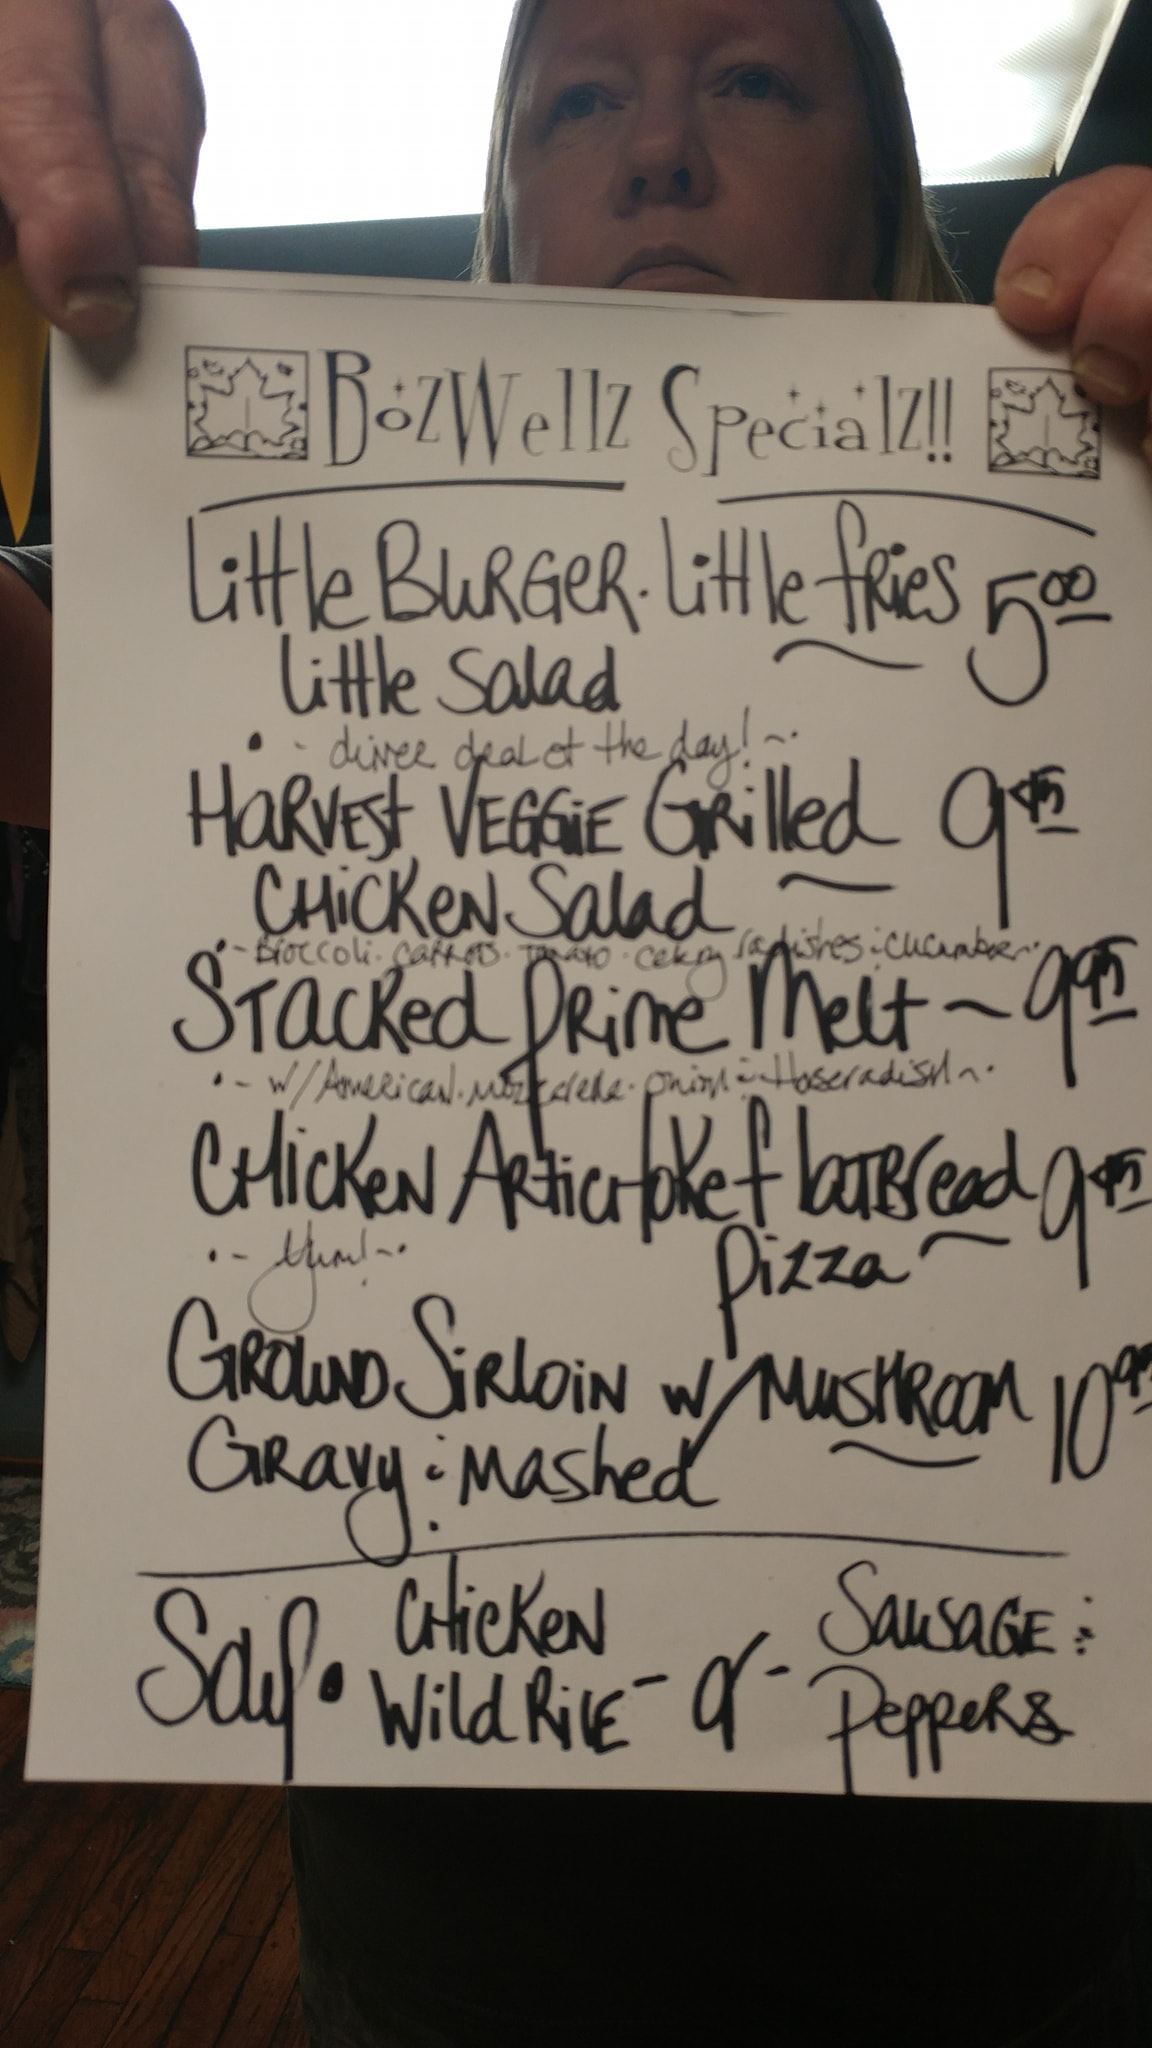 BozWellz Specialz!!
Little Burger. Little fries 5.00
Little Salad
- diner deal of the day! ~.
Harvest Veggie Grilled ~ 9.95
Chicken Salad
- Broccoli. carrots. tomato. celery radishes: cucumber.
Stacked Prime Melt ~ 9.95
- w/ American. mozzarella. onion: Horseradish ~.
Chicken Artichoke flatbread ~ 9.95
pizza
- Yum! ~.
Ground Sirloin w/ Mushroom ~ 10.95
Gravy : mashed
Soup • Chicken Wild Rice - or - Sausage : Peppers